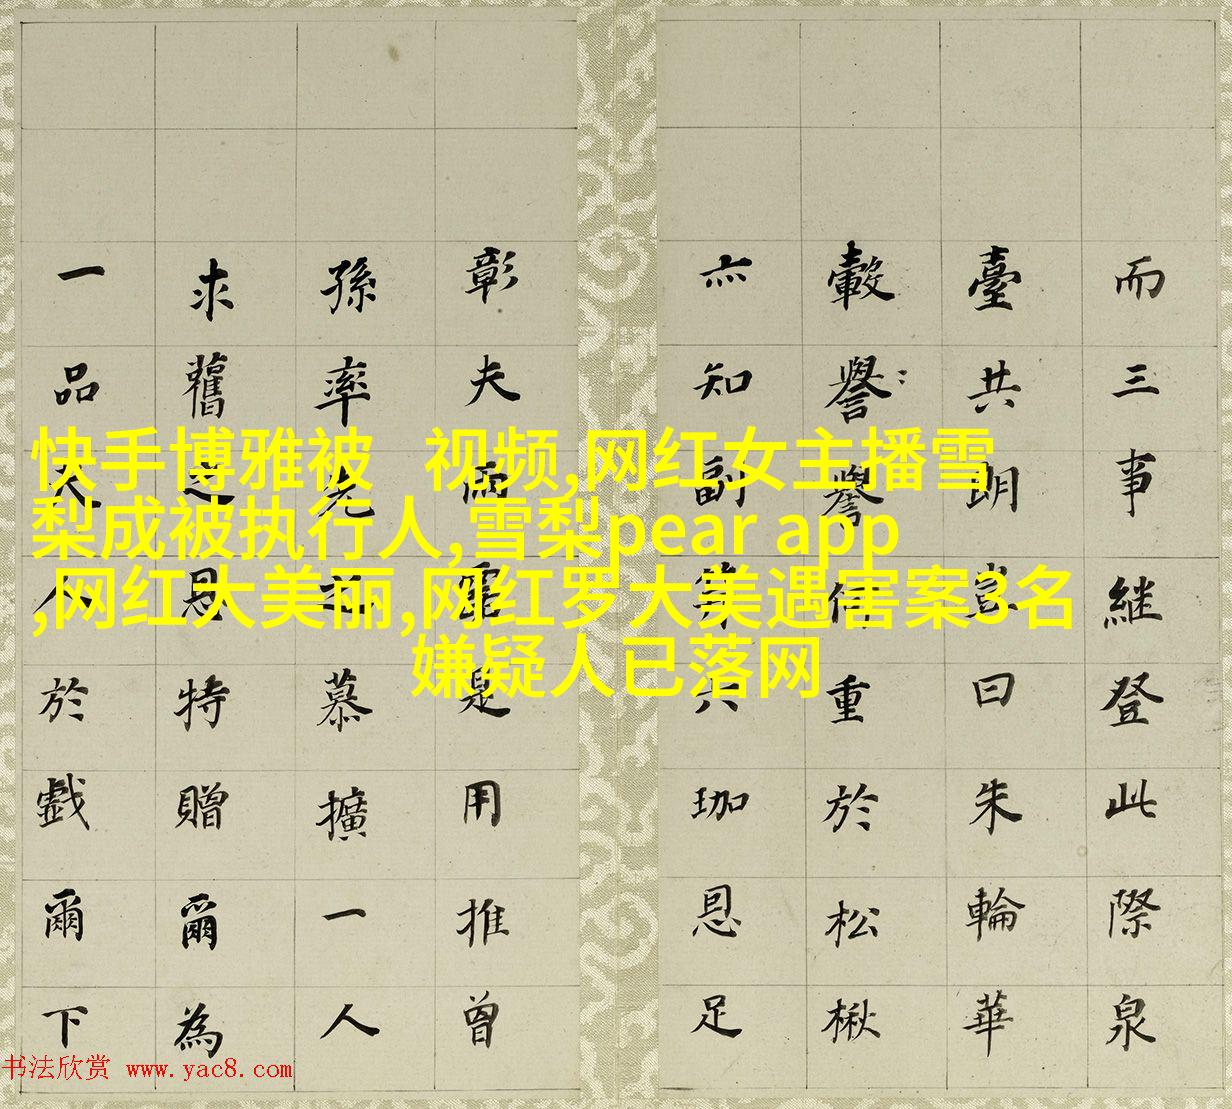 快手博雅被 视频,网红女主播雪
梨成被执行人,雪梨pear app
,网红大美丽,网红罗大美遇害案3名
嫌疑人已落网
而三事継登此際泉
臺共朗豈曰朱輪華
轂譽譽何重於松楸
亦知副笄六珈恩足
彰夫雨是用推曾
孫率先之慕擴一人
求舊之恩特贈爾為
一品夫人於戲爾下
书法欣赏 www.yac8.com